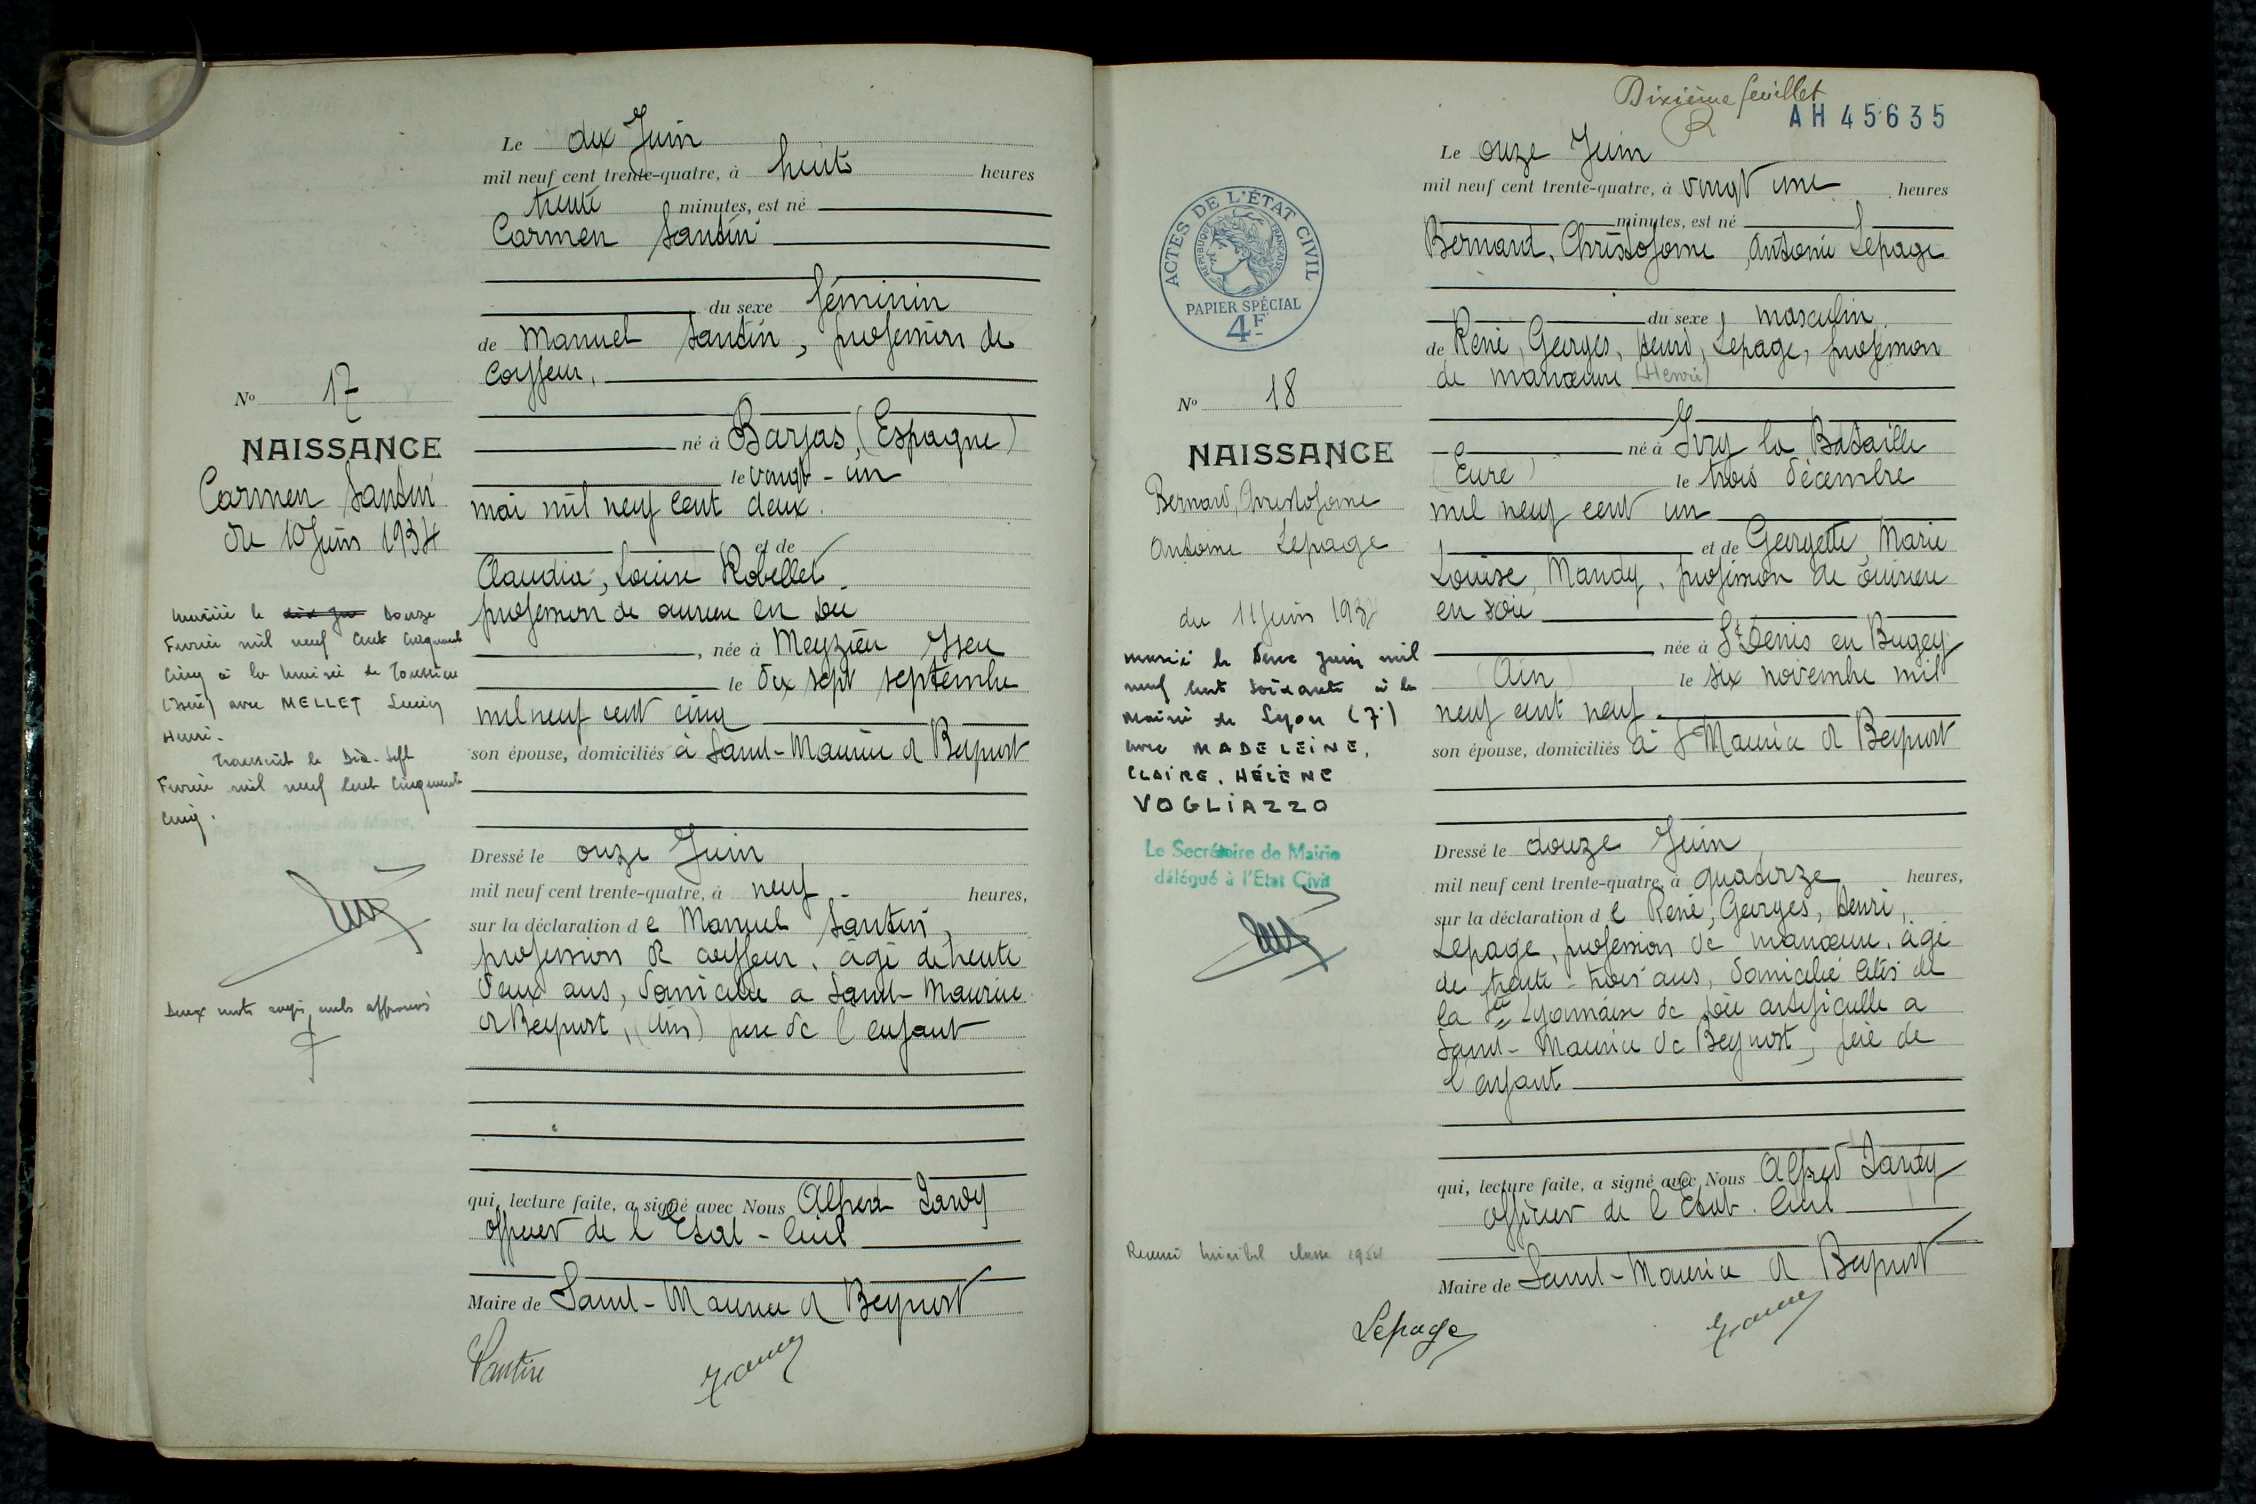 Le dix Juin
mil neuf cent trente-quatre, à huit heures
trente minutes, est né
Carmen Santin
du sexe féminin
de Manuel Santin, profession de
coiffeur,
né à Barjas, (Espagne)
le vingt-un
mai mil neuf cent deux.
et de
Claudia, Louise Robellet
profession de ouvrière en soie
, née à Meyzieu Isère
le dix sept septembre
mil neuf cent cinq
son épouse, domiciliés à Saint-Maurice de Beynost
Dressé le onze Juin
mil neuf cent trente-quatre, à neuf heures,
sur la déclaration de Manuel Santin,
profession de coiffeur, âgé de trente
deux ans, domicilié à Saint-Maurice
de Beynost, (Ain) père de l'enfant
qui, lecture faite, a signé avec Nous Alfred Tardy
officier de l'Etat-Civil
Maire de Saint-Maurice de Beynost
No 17
NAISSANCE
Carmen Santin
du 10 Juin 1934
Mariée le douze
Février mil neuf cent cinquante
cinq à la mairie de
(Isère) avec MELLET Lucien
Henri.
Transcrit le Dix-Sept
Février mil neuf cent cinquante
cinq.
Deux mots rayés nuls approuvés
Dixième feuillet
AH 45635
Le onze Juin
mil neuf cent trente-quatre, à vingt une heures
minutes, est né
Bernard, Christofome Antoine Lepage
du sexe masculin
de René, Georges, Henri, Lepage, profession
de manœuvre (Henri)
né à Ivry la Bataille
(Eure) le trois décembre
mil neuf cent un
et de Georgette, Marie
Louise, Mandy, profession de ouvrière
en soie
née à St Denis en Bugey
(Ain) le six novembre mil
neuf cent neuf
son épouse, domiciliés à St Maurice de Beynost
Dressé le douze Juin
mil neuf cent trente-quatre, à quatorze heures,
sur la déclaration de René, Georges, Henri,
Lepage, profession de manœuvre, âgé
de trente-trois ans, domicilié cités de
la Sté Lyonnaise de soie artificielle à
Saint-Maurice de Beynost, père de
l'enfant
qui, lecture faite, a signé avec Nous Alfred Tardy
officier de l'Etat-Civil
Maire de Saint-Maurice de Beynost
Lepage
ACTES DE L'ÉTAT CIVIL
RÉPUBLIQUE FRANÇAISE
PAPIER SPÉCIAL
4F
No 18
NAISSANCE
Bernard, Christofome
Antoine Lepage
du 11 Juin 1934
marié le Juin mil
neuf cent soixante à la
mairie de Lyon (7e)
avec MADELEINE,
CLAIRE, HÉLÈNE
VOGLIAZZO
Le Secrétaire de Mairie
délégué à l'Etat Civil
classe 1954